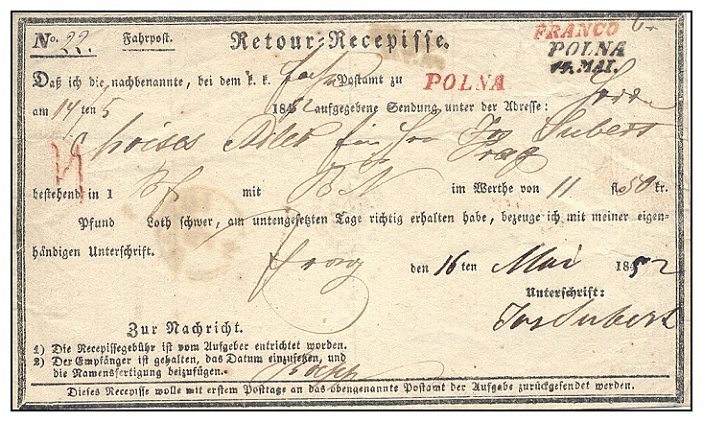 No. 22. Fahrpost. Retour-Recepisse. FRANCO
POLNA
14. MAI.
Daß ich die nachbenannte, bei dem k. k. Postamt zu POLNA
am 14 ten 5 1852 aufgegebene Sendung unter der Adresse: Herrn
Moises Adler für Jos Subert
Prag
bestehend in 1 Bf mit BN im Werthe von 11 fl 50 kr.
Pfund Loth schwer, am untengesetzten Tage richtig erhalten habe, bezeuge ich mit meiner eigen-
händigen Unterschrift.
Prag den 16 ten Mai 1852
Unterschrift:
Jos Subert
Zur Nachricht.
1) Die Recepissegebühr ist vom Aufgeber entrichtet worden.
2) Der Empfänger ist gehalten, das Datum einzusetzen, und
die Namensfertigung beizufügen.
Dieses Recepisse wolle mit erstem Posttage an das obengenannte Postamt der Aufgabe zurückgesendet werden.